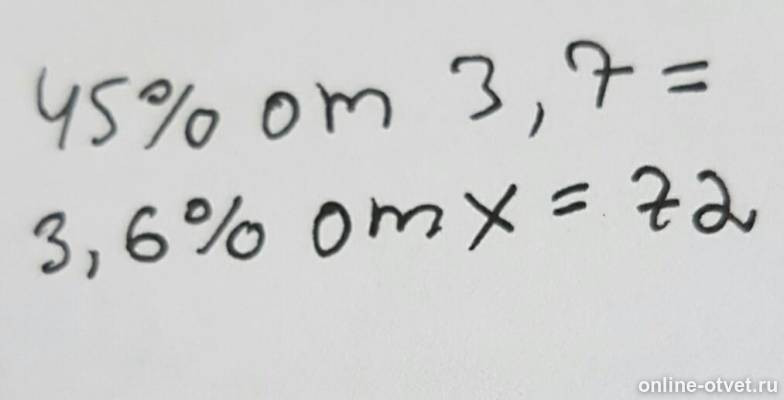 45% от 3,7=
3,6% от x = 72
online-otvet.ru